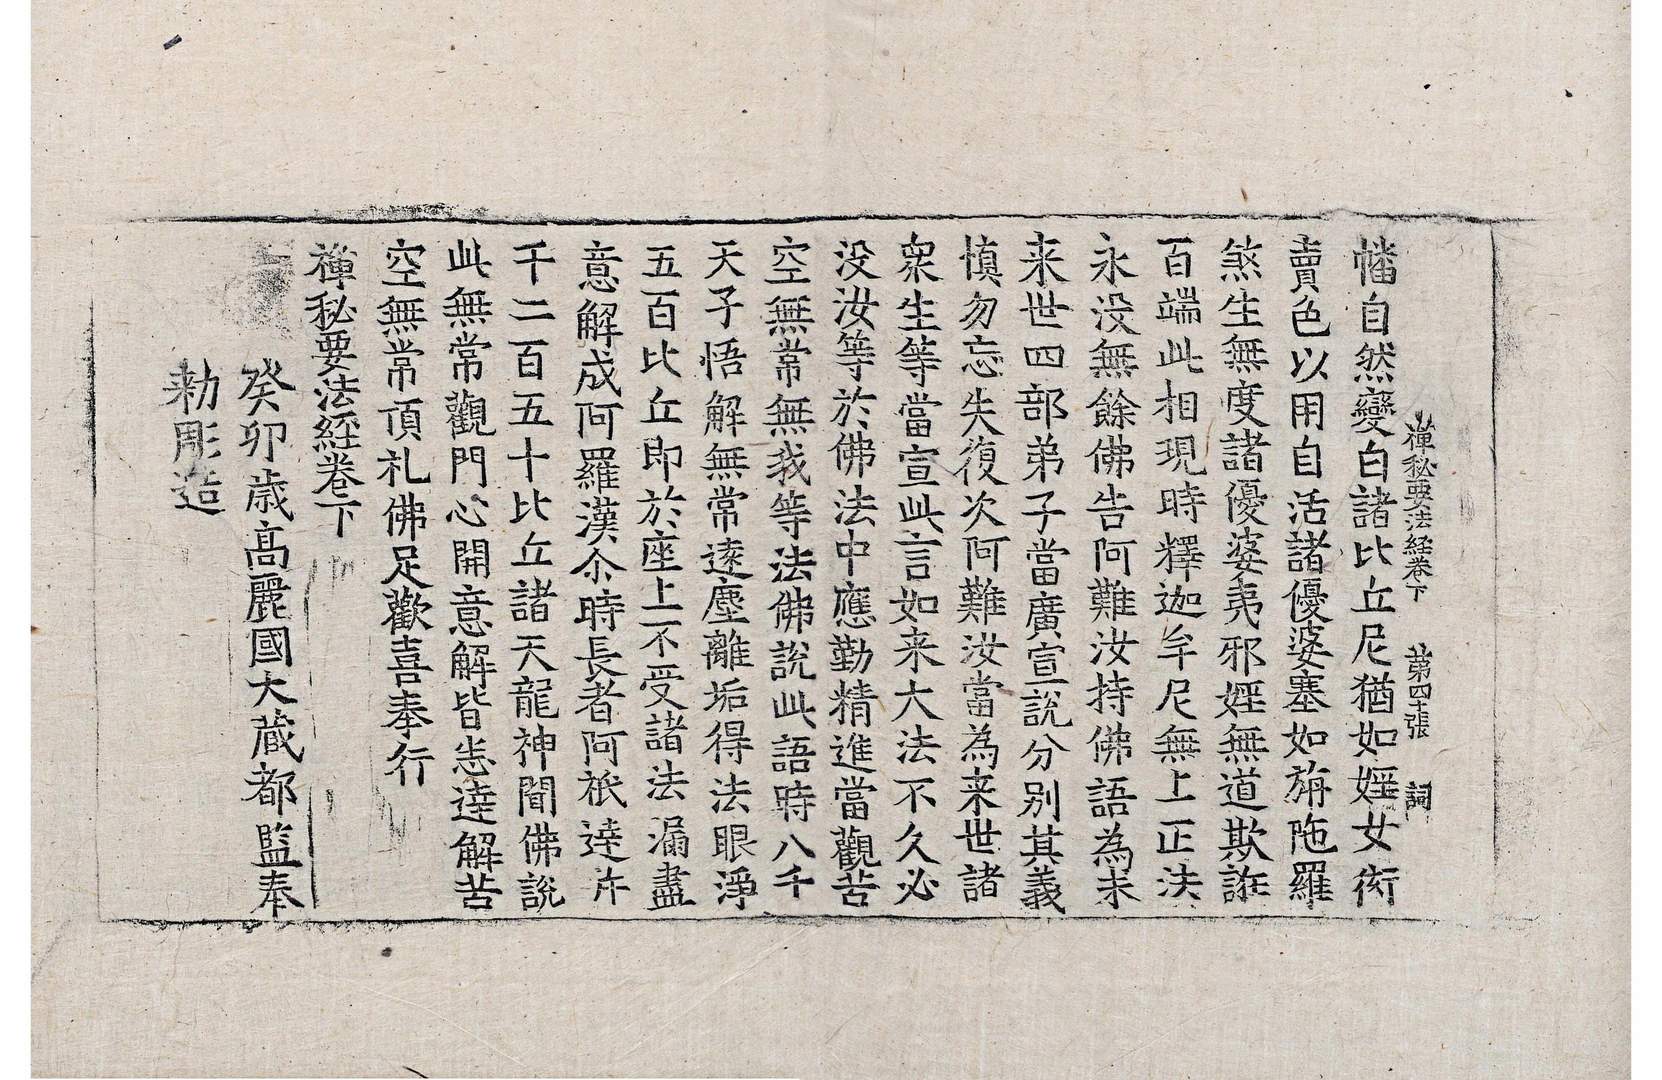 禪秘要法経卷下 第四十張 詞
幡自然變白諸比丘尼猶如婬女衒
賣色以用自活諸優婆塞如旃陁羅
煞生無度諸優婆夷邪婬無道欺誑
百端此相現時釋迦牟尼無上正法
永没無餘佛告阿難汝持佛語為未
来世四部弟子當廣宣說分別其義
慎勿忘失復次阿難汝當為来世諸
衆生等當宣此言如来大法不久必
没汝等於佛法中應勤精進當觀苦
空無常無我等法佛說此語時八千
天子悟解無常遠塵離垢得法眼淨
五百比丘即於座上不受諸法漏盡
意解成阿羅漢尒時長者阿祇達并
千二百五十比丘諸天龍神聞佛說
此無常觀門心開意解皆悉達解苦
空無常頂礼佛足歡喜奉行
禪秘要法経卷下
癸卯歲髙麗國大蔵都監奉
勑彫造